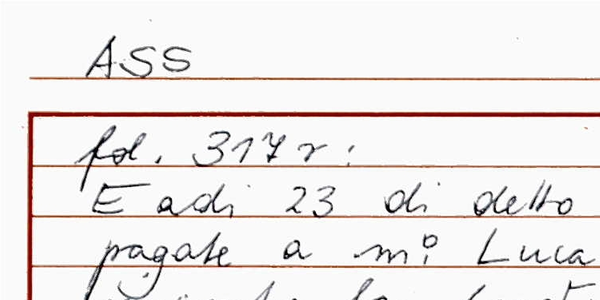 ASS
fol. 317 r:
E adi 23 di detto
pagate a m° Luca